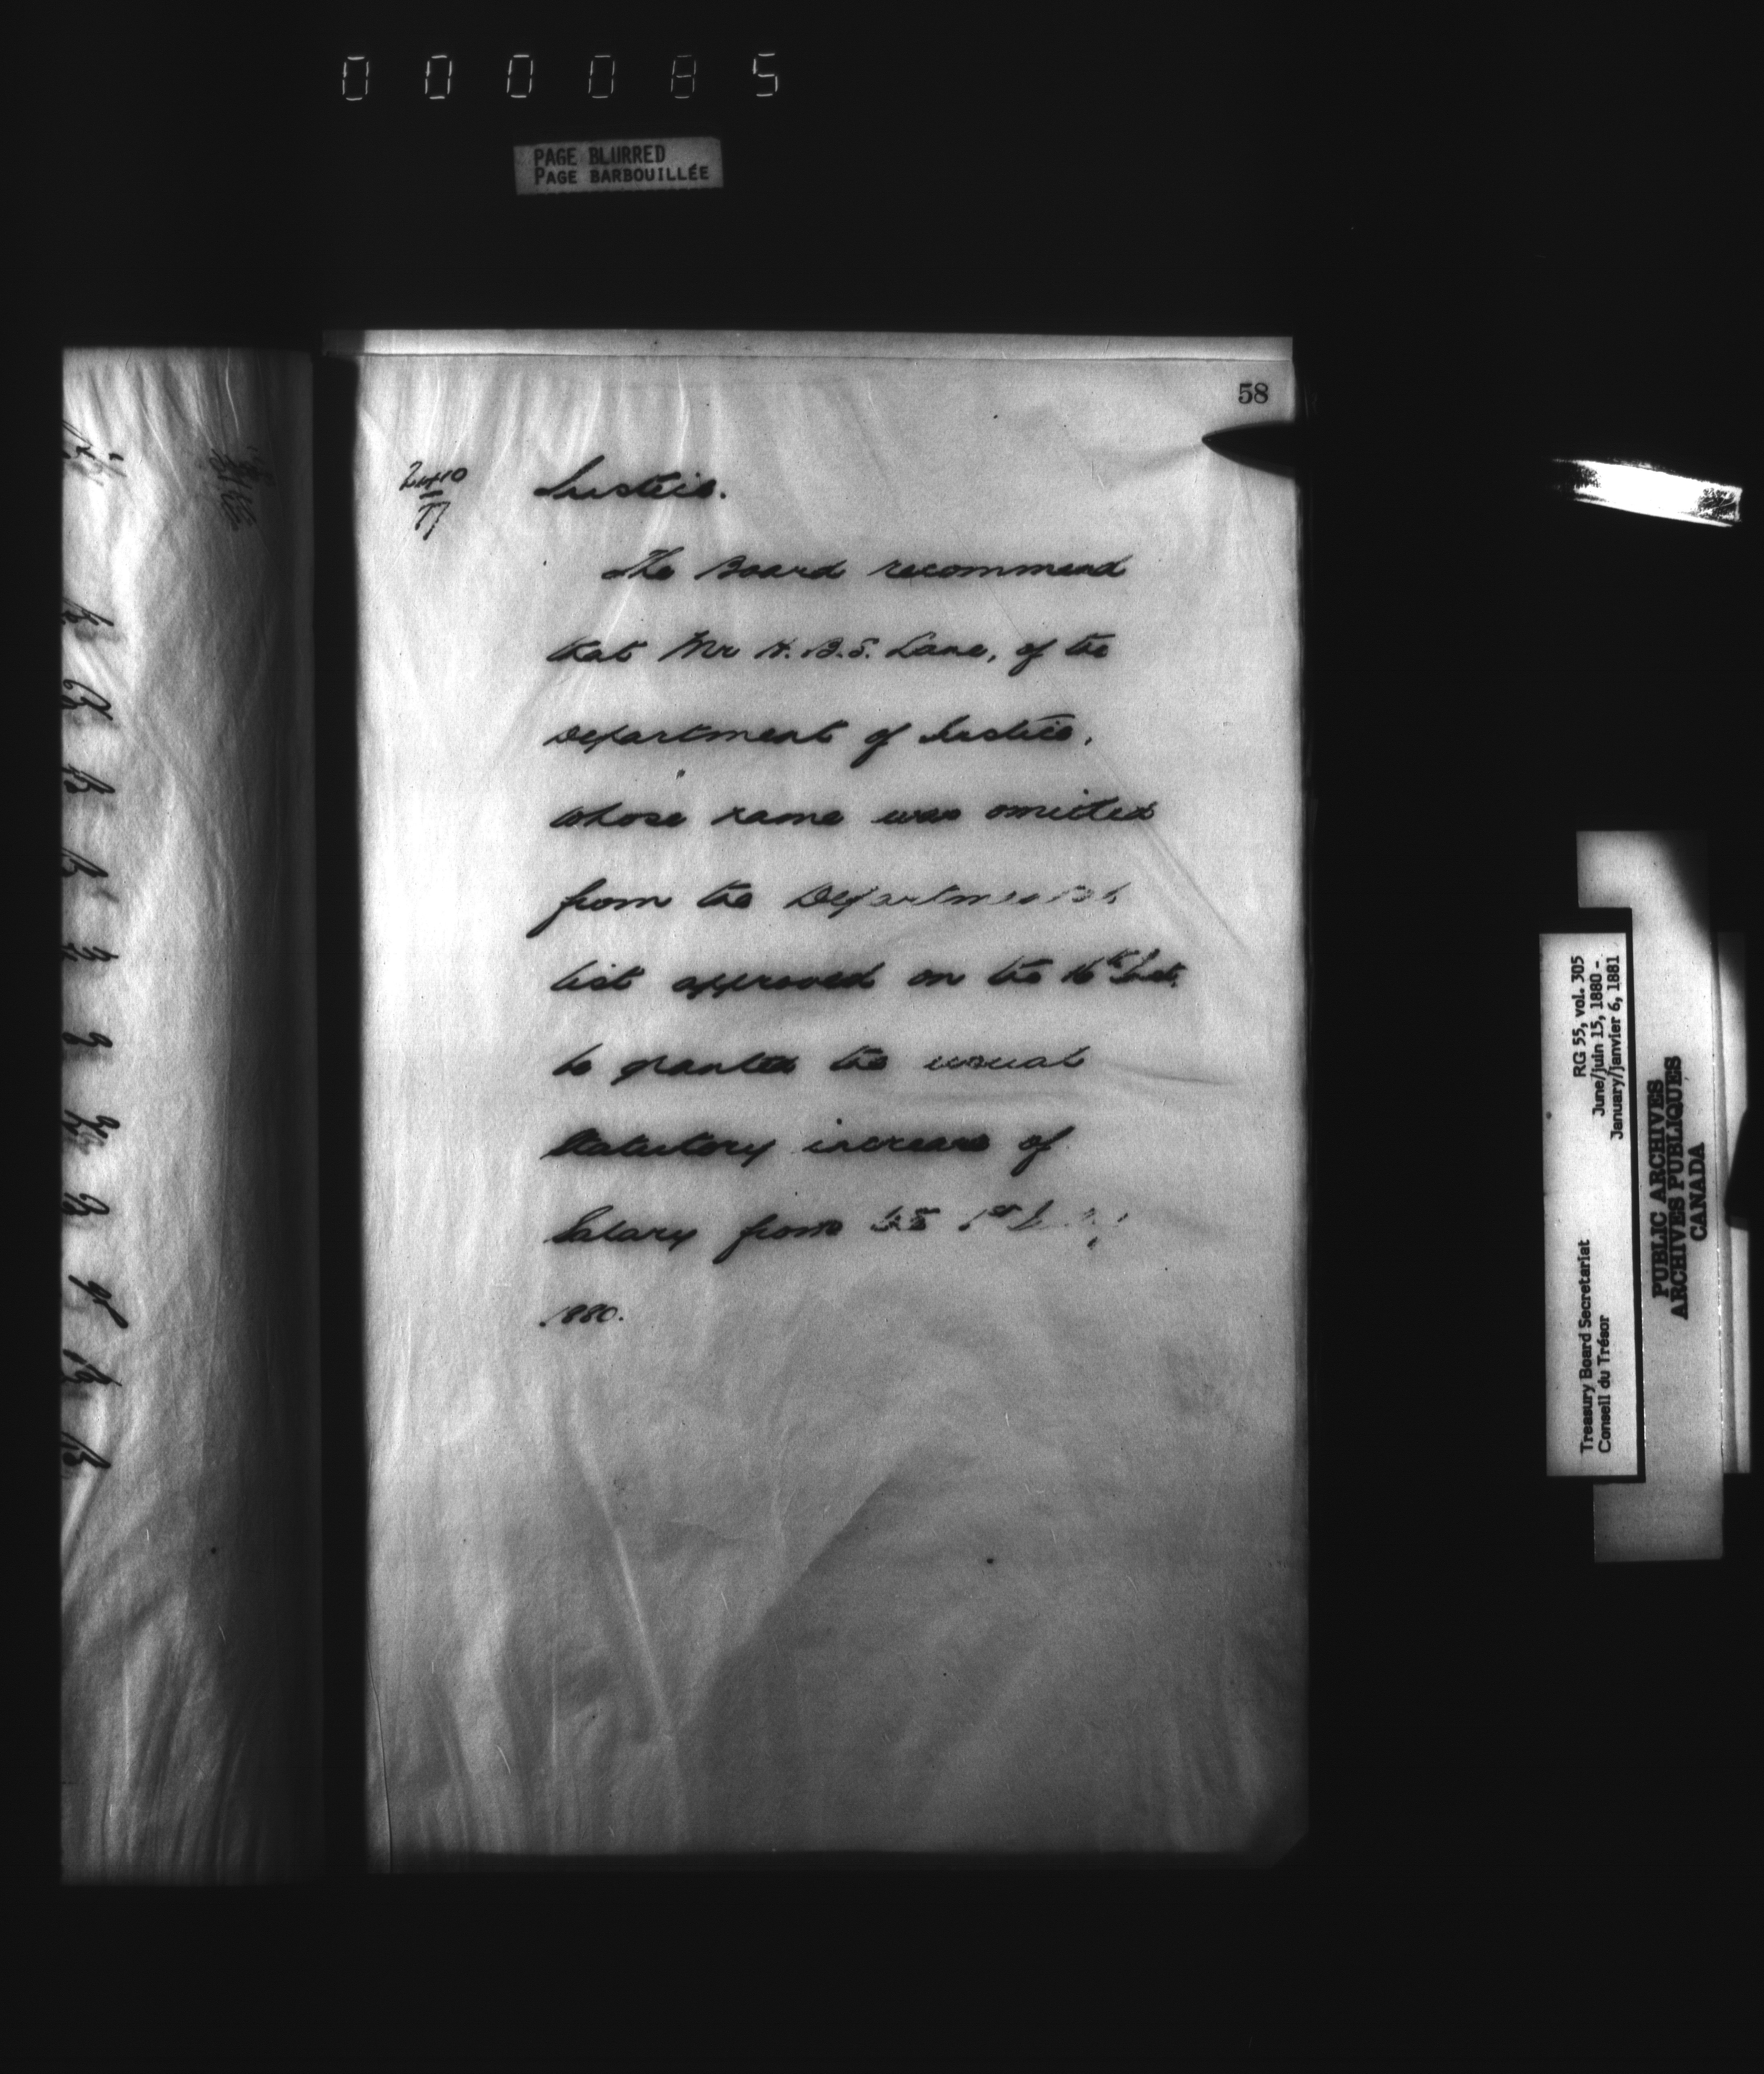 000085
PAGE BLURRED
PAGE BARBOUILLÉE
58
2410
77
Justice.
The Board recommend
that Mr H. B. S. Lane, of the
Department of Justice,
whose name was omitted
from the Departmental
list approved on the 16th Inst.
be granted the usual
Statutory increase of
Salary from the 1st
1880.
Treasury Board Secretariat RG 55, vol. 305
Conseil du Trésor June/juin 15, 1880 -
January/janvier 6, 1881
PUBLIC ARCHIVES
ARCHIVES PUBLIQUES
CANADA